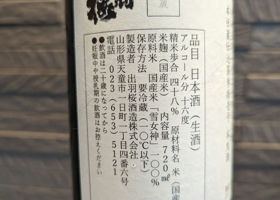 品目 日本酒(生酒)
アルコール分 十六度
精米歩合 四十八% 原材料名 米(国産)
米麹(国産米) 内容量 720ml
原料米 国産米「雪女神」一〇〇%
保存方法 要冷蔵(一〇℃以下)
製造者 出羽桜酒造株式会社
山形県天童市一日町一丁目四番六号
電話 023(653)5121
●飲酒は二十歳になってから
●妊娠中や授乳期の飲酒はお控えください
蔵